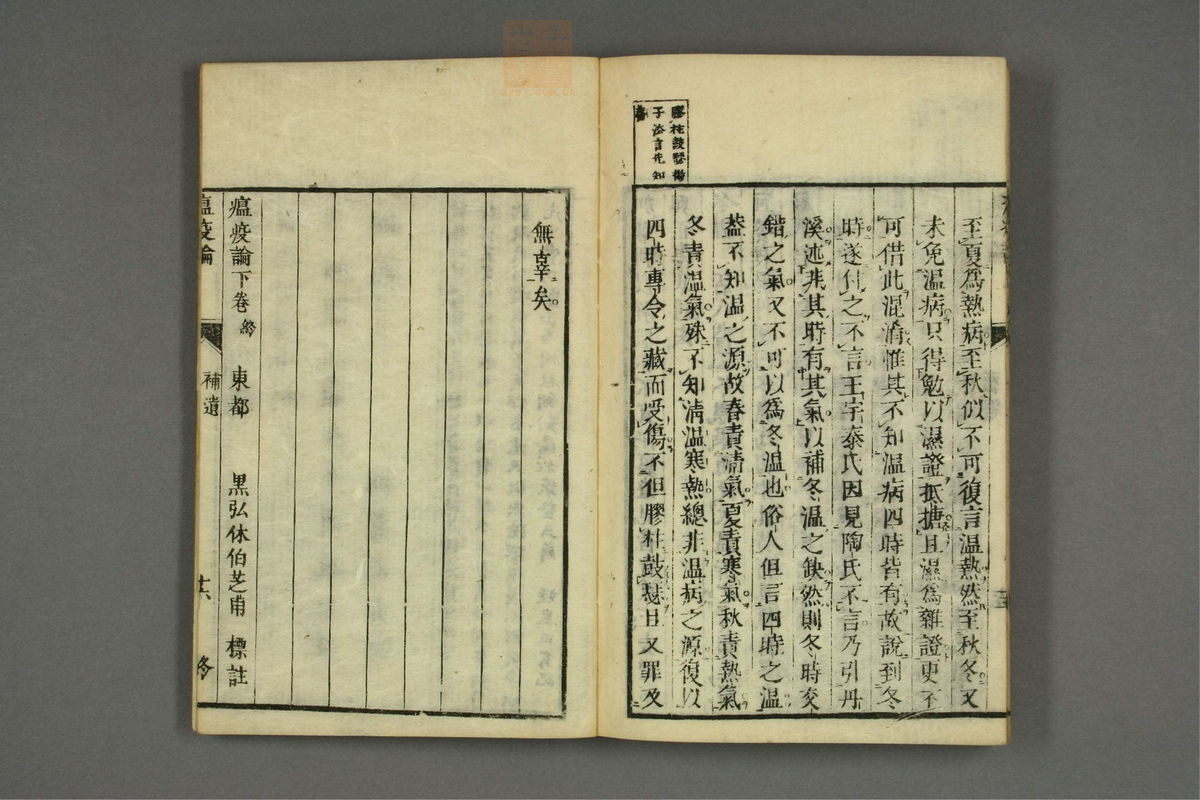 膠柱鼓瑟揚
子法言先知
至夏爲熱病至秋似不可復言温熱然至秋冬又
未免温病只得勉以濕證抵搪且濕爲雜證更不
可借此混淆惟其不知温病四時皆有故說到冬
時遂付之不言王宇泰氏因見陶氏不言乃引丹
溪述非其時有其氣以補冬温之缺然則冬時交
錯之氣又不可以爲冬温也俗人但言四時之温
蓋不知温之源故春責清氣夏責寒氣秋責熱氣
冬責温氣殊不知清温寒熱總非温病之源復以
四時專令之藏而受傷不但膠柱鼓瑟且又罪及
無辜矣
瘟疫論下卷終 東都 黒弘休伯芝甫 標註
瘟疫論 補遺 十六 終